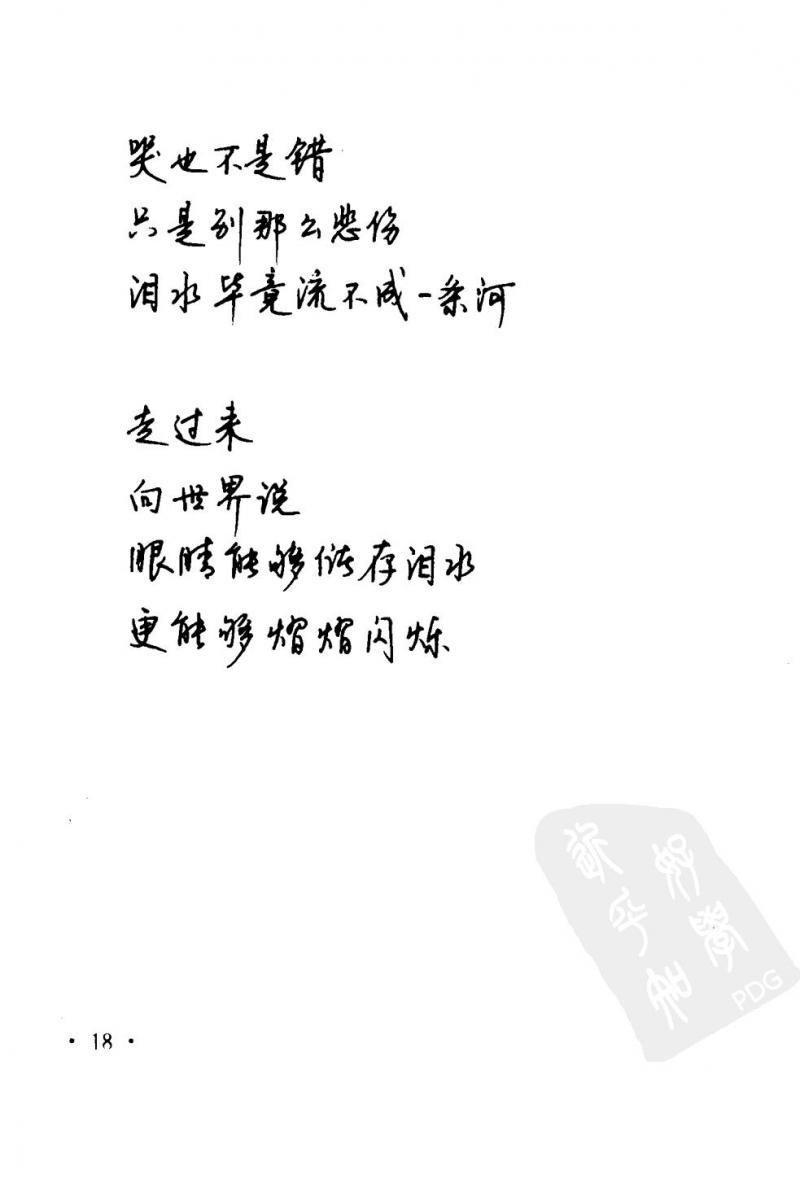 哭也不是错
只是别那么悲伤
泪水毕竟流不成一条河
走过来
向世界说
眼睛能够储存泪水
更能够熠熠闪烁
PDG
· 18 ·